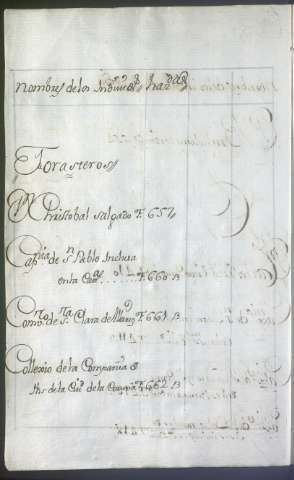 nombres de los Indivi.os
Forasteros
Dn Christobal salgado F. 657
Cap.nia de S.n Pablo Inclusa
en la Ciu.d F. 660 B
Com.to de S.ta Clara de F. 661 B
Collexio de la Compania de
Jhs de la Ciu.d de la F. 662 B